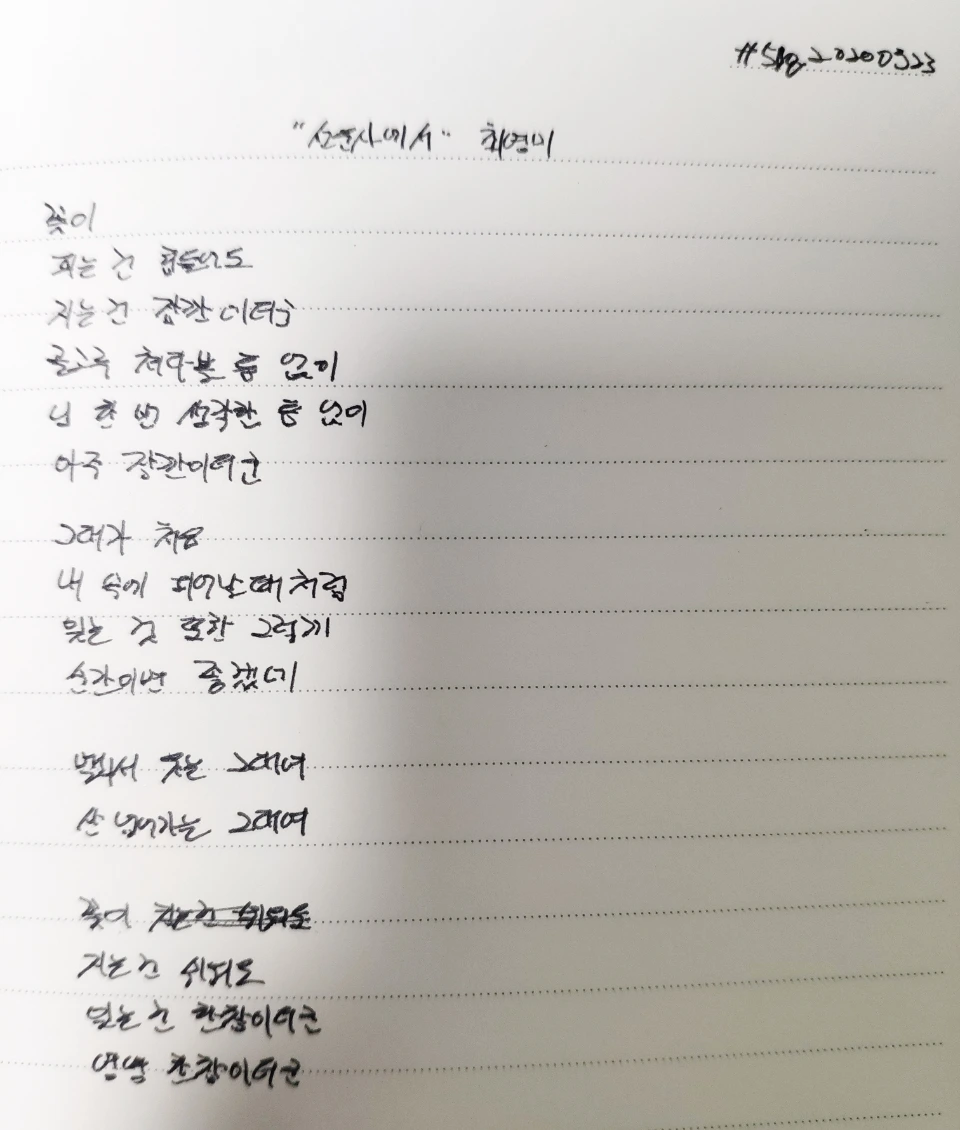 "선운사에서" 최영미
꽃이
피는 건 힘들어도
지는 건 잠깐이더군
골고루 쳐다볼 틈 없이
님 한 번 생각할 틈 없이
아주 잠깐이더군
그대가 처음
내 속에 피어날 때처럼
잊는 것 또한 그렇게
순간이면 좋겠네
멀리서 웃는 그대여
산 넘어가는 그대여
꽃이
지는 건 쉬워도
잊는 건 한참이더군
영영 한참이더군